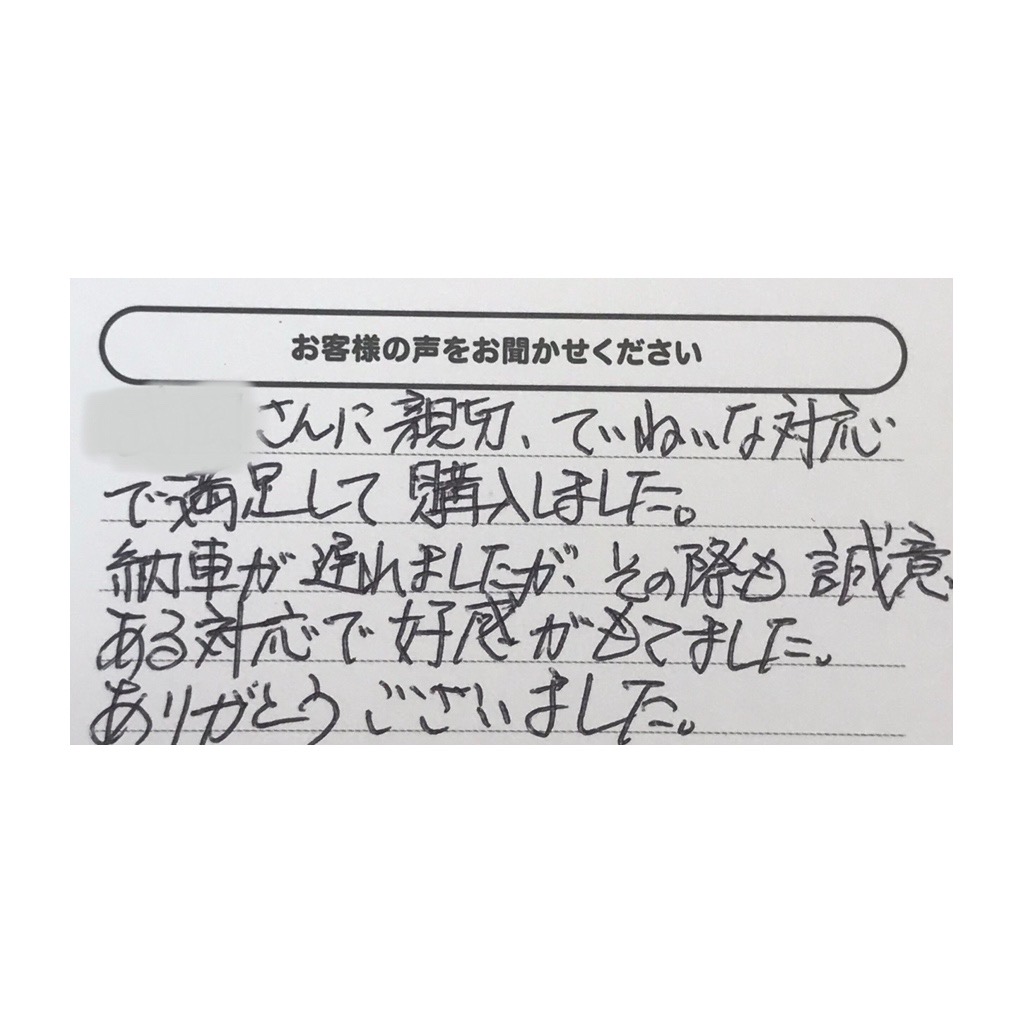 お客様の声をお聞かせください
さんに親切、ていねいな対応
で満足して購入しました。
納車が遅れましたが、その際も誠意
ある対応で好感がもてました。
ありがとうございました。